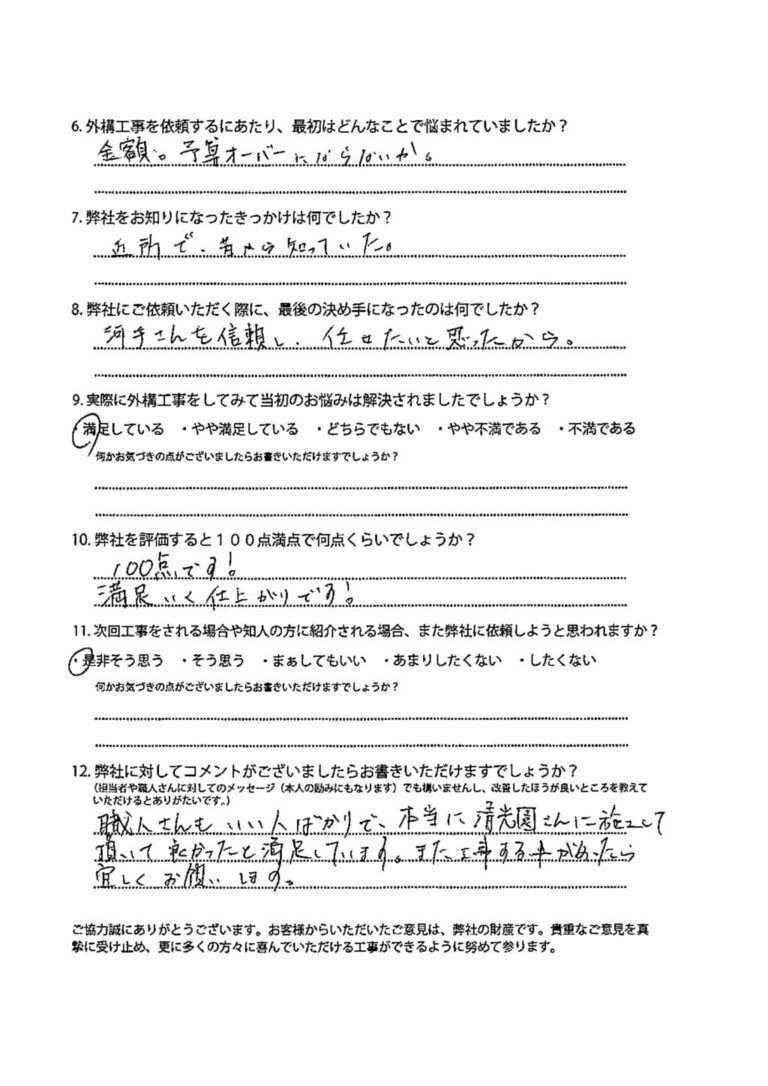 6. 外構工事を依頼するにあたり、最初はどんなことで悩まれていましたか？
金額。予算オーバーにならないか。
7. 弊社をお知りになったきっかけは何でしたか？
近所で、昔から知っていた。
8. 弊社にご依頼いただく際に、最後の決め手になったのは何でしたか？
河手さんを信頼し、任せたいと思ったから。
9. 実際に外構工事をしてみて当初のお悩みは解決されましたでしょうか？
・満足している ・やや満足している ・どちらでもない ・やや不満である ・不満である
何かお気づきの点がございましたらお書きいただけますでしょうか？
10. 弊社を評価すると１００点満点で何点くらいでしょうか？
100点です！
満足いく仕上がりです！
11. 次回工事をされる場合や知人の方に紹介される場合、また弊社に依頼しようと思われますか？
・是非そう思う ・そう思う ・まぁしてもいい ・あまりしたくない ・したくない
何かお気づきの点がございましたらお書きいただけますでしょうか？
12. 弊社に対してコメントがございましたらお書きいただけますでしょうか？
（担当者や職人さんに対してのメッセージ（本人の励みにもなります）でも構いませんし、改善したほうが良いところを教えて
いただけるとありがたいです。）
職人さんもいい人ばかりで、本当に清光園さんに施工して
頂いて良かったと満足しています。また工事する事があったら
宜しくお願いします。
ご協力誠にありがとうございます。お客様からいただいたご意見は、弊社の財産です。貴重なご意見を真
摯に受け止め、更に多くの方々に喜んでいただける工事ができるように努めて参ります。